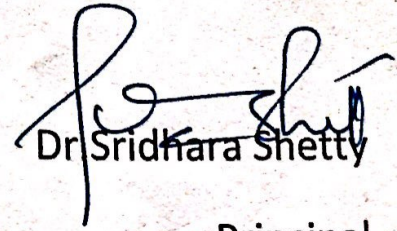 Dr Sridhara Shetty
Principal